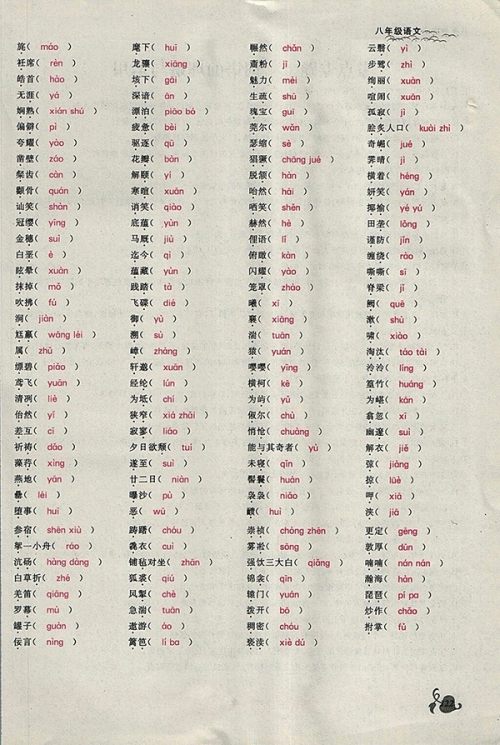 八年级语文
旄( máo ) 麾下( huī ) 冁然( chǎn ) 云翳( yì )
衽席( rèn ) 龙骧( xiāng ) 齑粉( jī ) 步骘( zhì )
皓首( hào ) 垓下( gāi ) 魅力( mèi ) 绚丽( xuàn )
无涯( yá ) 深谙( ān ) 生疏( shū ) 喧闹( xuān )
娴熟( xián shú ) 漂泊( piāo bó ) 瑰宝( guī ) 孤寂( jì )
偏僻( pì ) 疲惫( bèi ) 莞尔( wǎn ) 脍炙人口( kuài zhì )
夸耀( yào ) 驱逐( qū ) 瑟缩( sè ) 奇崛( jué )
凿壁( záo ) 花瓣( bàn ) 猖獗( chāng jué ) 霁晴( jì )
柴齿( càn ) 解颐( yí ) 脱颔( hàn ) 横着( héng )
颧骨( quán ) 寒暄( xuān ) 咍然( hāi ) 妍笑( yán )
讪笑( shàn ) 诮笑( qiào ) 哂笑( shěn ) 揶揄( yé yú )
冠缨( yīng ) 底蕴( yùn ) 赫然( hè ) 田垄( lǒng )
金穗( suì ) 马厩( jiù ) 俚语( lǐ ) 谨防( jǐn )
白垩( è ) 迄今( qì ) 俯瞰( kàn ) 缠绕( rào )
眩晕( xuàn ) 蕴藏( yùn ) 闪耀( yào ) 嘶嘶( sī )
抹掉( mǒ ) 践踏( tà ) 笼罩( zhào ) 脊梁( jǐ )
吹拂( fú ) 飞碟( dié ) 曦( xī ) 阙( quē )
涧( jiàn ) 御( yù ) 襄( xiāng ) 漱( shù )
尪羸( wāng léi ) 溯( sù ) 湍( tuān ) 啸( xiào )
属( zhǔ ) 嶂( zhàng ) 猿( yuán ) 淘汰( táo tài )
缥碧( piǎo ) 轩邈( xuān ) 嘤嘤( yīng ) 泠泠( líng )
鸢飞( yuān ) 经纶( lún ) 横柯( kē ) 篁竹( huáng )
清冽( liè ) 为坻( chí ) 为屿( yǔ ) 为嵁( kān )
怡然( yí ) 狭窄( xiá zhǎi ) 俶尔( chù ) 翕忽( xī )
差互( cī ) 寂寥( liáo ) 悄怆( chuàng ) 幽邃( suì )
祈祷( dǎo ) 夕日欲颓( tuí ) 能与其奇者( yù ) 解衣( jiě )
藻荇( xìng ) 遂至( suì ) 未寝( qǐn ) 强( jiàng )
燕地( yān ) 廿二日( niàn ) 髻鬟( huán ) 掠( lüè )
罍( léi ) 曝沙( pù ) 袅袅( niǎo ) 呷( xiā )
堕事( huī ) 恶( wù ) 喙( huì ) 浃( jiā )
参宿( shēn xiù ) 踌躇( chóu ) 崇祯( chóng zhēn ) 更定( gēng )
拏一小舟( ráo ) 毳衣( cuì ) 雾凇( sōng ) 敦厚( dūn )
沆砀( hàng dàng ) 铺毡对坐( zhān ) 强饮三大白( qiǎng ) 喃喃( nán nán )
白草折( zhé ) 狐裘( qiú ) 锦衾( qīn ) 瀚海( hàn )
羌笛( qiāng ) 风掣( chè ) 辕门( yuán ) 琵琶( pí pa )
罗幕( mù ) 急湍( tuān ) 拨开( bō ) 炒作( chǎo )
罐子( guàn ) 遨游( áo ) 稠密( chóu ) 拊掌( fǔ )
佞言( nìng ) 篱笆( lí ba ) 亵渎( xiè dú )